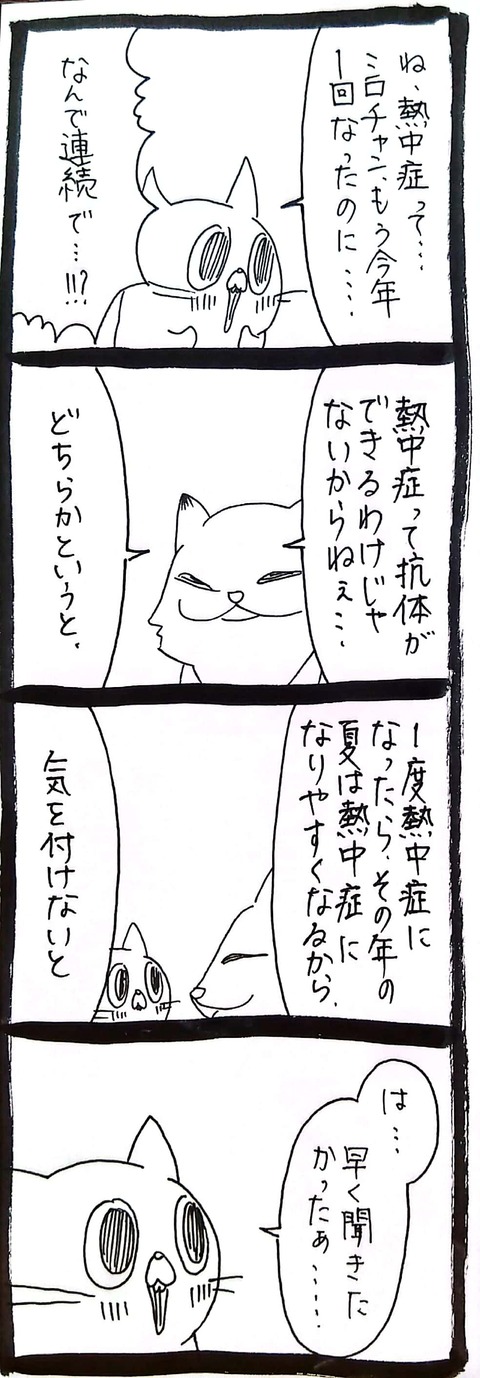 ね、熱中症って…
ミロチャン、もう今年
1回なったのに….
なんで連続で…!!?
熱中症って抗体が
できるわけじゃ
ないからねぇ…
どちらかというと、
1度熱中症に
なったら、その年の
夏は熱中症に
なりやすくなるから、
気を付けないと
は…
早く聞きた
かったぁ……